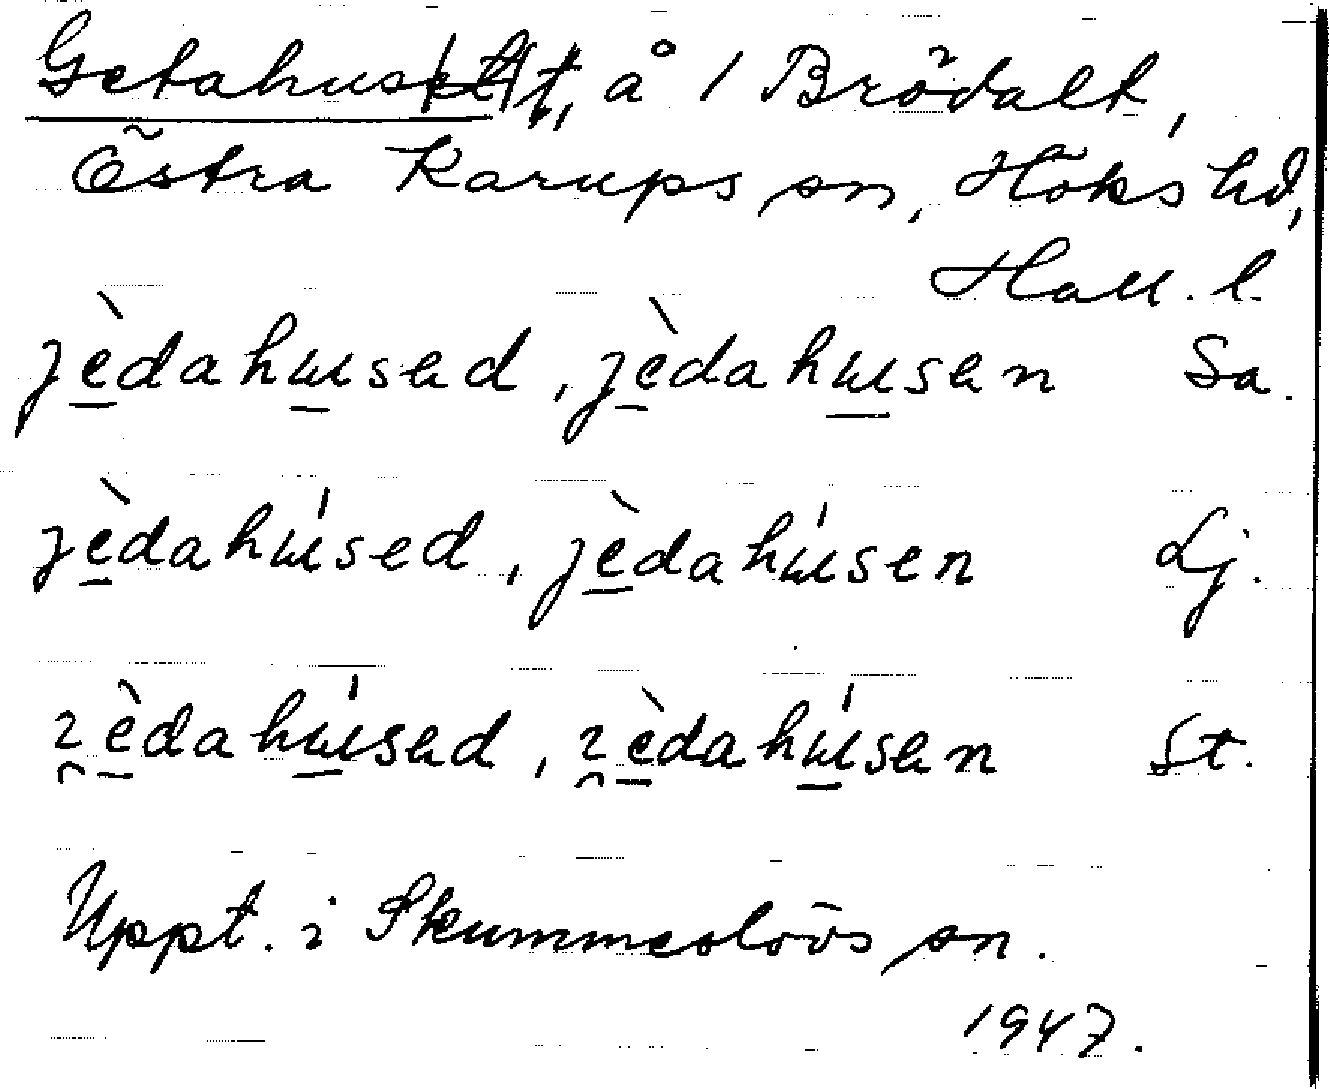 Getahuset, å 1 Brödalt,
Östra Karups sn, Höks hd,
Hall. l.
jèdahused, jèdahusen Sa.
jèdahúsed, jèdahúsen Lj.
ɂèdahúsed, ɂèdahúsen St.
Uppt. i Skummeslövs sn.
1947.